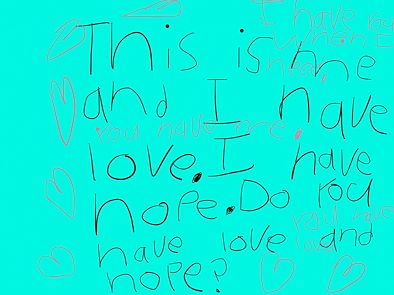 I have you
when I
need.
This is me
and I have
You have me.
love. I have
hope. Do you
You have
have love and
hope?